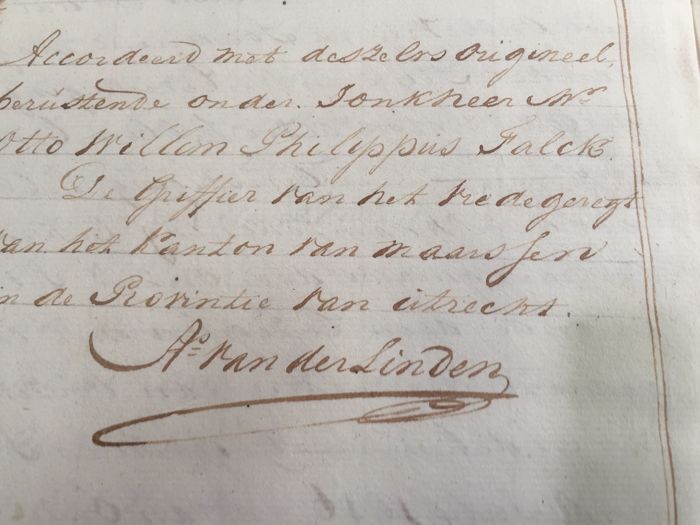 Accordeerd met deszelvs origineel,
berustende onder Jonkheer Mr
Otto Willem Philippus Falck.
De Griffier van het vredegeregt
van het Kanton van maarssen
in de Provintie van utrecht.
As van der Linden